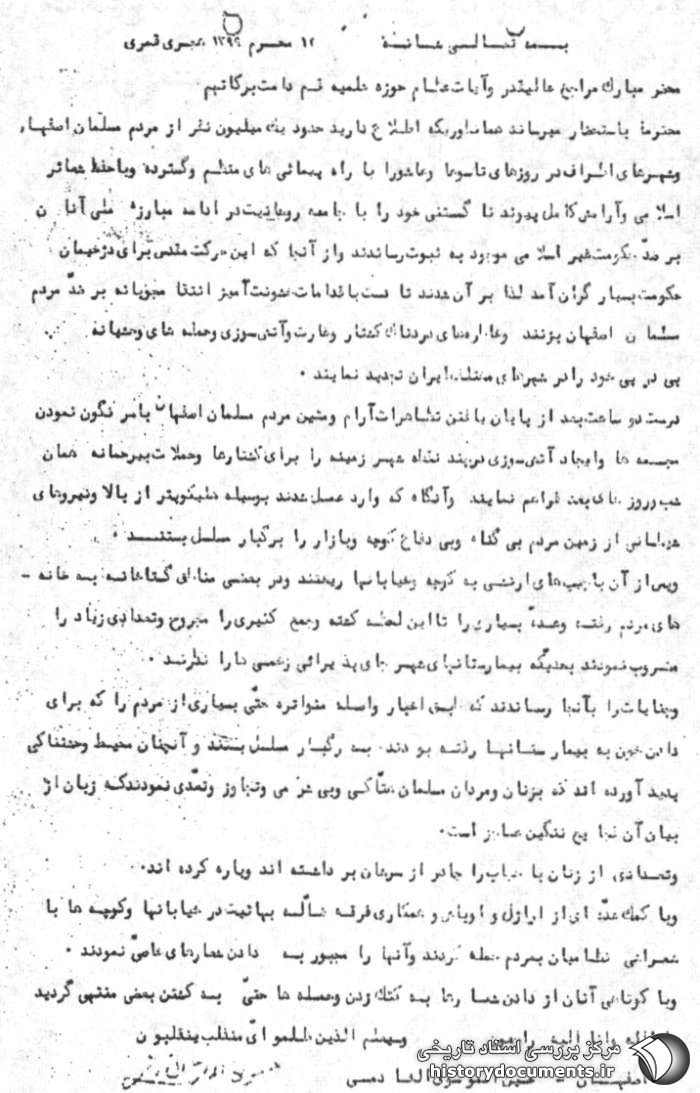 بسمه تعالی شأنه ۱۲ محرم ۱۳۹۹ هجری قمری
محضر مبارک مراجع عالیقدر وآیات عظام حوزه علمیه قم دامت برکاتهم
محترماً باستحضار میرساند همانطوریکه اطلاع دارید حدود یک میلیون نفر از مردم مسلمان اصفهان
وشهرهای اطراف در روزهای تاسوعا وعاشورا با راه پیمائی های منظم وگسترده وباحفظ شعائر
اسلامی وآرامش کامل پیوند ناگسستنی خود را با جامعه روحانیت در ادامه مبارزه علی آنان
بر ضدّ حکومت غیر اسلامی موجود به ثبوت رساندند واز آنجا که این حرکت مقدس برای دژخیمان
حکومت بسیار گران آمد لذا بر آن شدند تا دست باقدامات خشونت آمیز انتقامجویانه بر ضدّ مردم
مسلمان اصفهان بزنند وخاطره های دردناک کشتار وغارت وآتش سوزی وحمله های وحشیانه
پی در پی خود را در شهرهای مختلف ایران تجدید نمایند ۰
درست دو ساعت بعد از پایان یافتن تظاهرات آرام ومتین مردم مسلمان اصفهان بامر نگون نمودن
مجسمه ها وایجاد آتش سوزی در چند نقطه شهر زمینه را برای کشتارها وحملات بیرحمانه همان
شب وروز های بعد فراهم نمایند وآنگاه که وارد عمل شدند بوسیله هلیکوپتر از بالا ونیروهای
از زمین مردم بی گناه وبی دفاع کوچه وبازار را برگبار مسلسل بستند ۰
وپس از آن با جیپ های ارتشی به کوچه وخیابانها ریختند ودر بعضی مناطق گستاخانه بسه خانه -
های مردم رفته وعدّه بسیاری را تا این لحظه کشته وجمع کثیری را مجروح وتعدادی زیاد را
مضروب نمودند بحدیکه بیمارستانهای شهر جای پذیرائی زخمی ها را نظرند ۰
وجنایات را بآنجا رساندند که طبق اخبار واصله متواتره حتّی بسیاری از مردم را که برای
دادن خون به بیمارستانها رفته بودند بسه رگبار مسلسل بستند و آنچنان محیط وحشتناکی
پدید آورده اند که بزنان ومردان مسلمان هتّاکی وبی حرمی وتجاوز وتعدّی نمودندکه زبان از
بیان آن فجایع ننگین عاجز است۰
وتعدادی از زنان با حجاب را چادر از سرشان بر داشته اند وپاره کرده اند۰
وبا کمک عدّه ای از اراذل و اوباش و همکاری فرقه ضالّه بهائیت در خیابانها وکوچه ها با
همراهی نظامیان بمردم حمله کردند وآنها را مجبور به دادن شعارهای خاصّی نمودند ۰
وبا کوتاهی آنان از دادن شعارها بسه کتک زدن وحمله ها حتّی بسه کشتن بعضی منتهی گردید
انا لله وانا الیه راجعون وسیعلم الذین ظلموا ایّ منقلب ینقلبون
اصفهان - حسین الموسوی الخادمی
مرکز بررسی اسناد تاریخی
historydocuments.ir